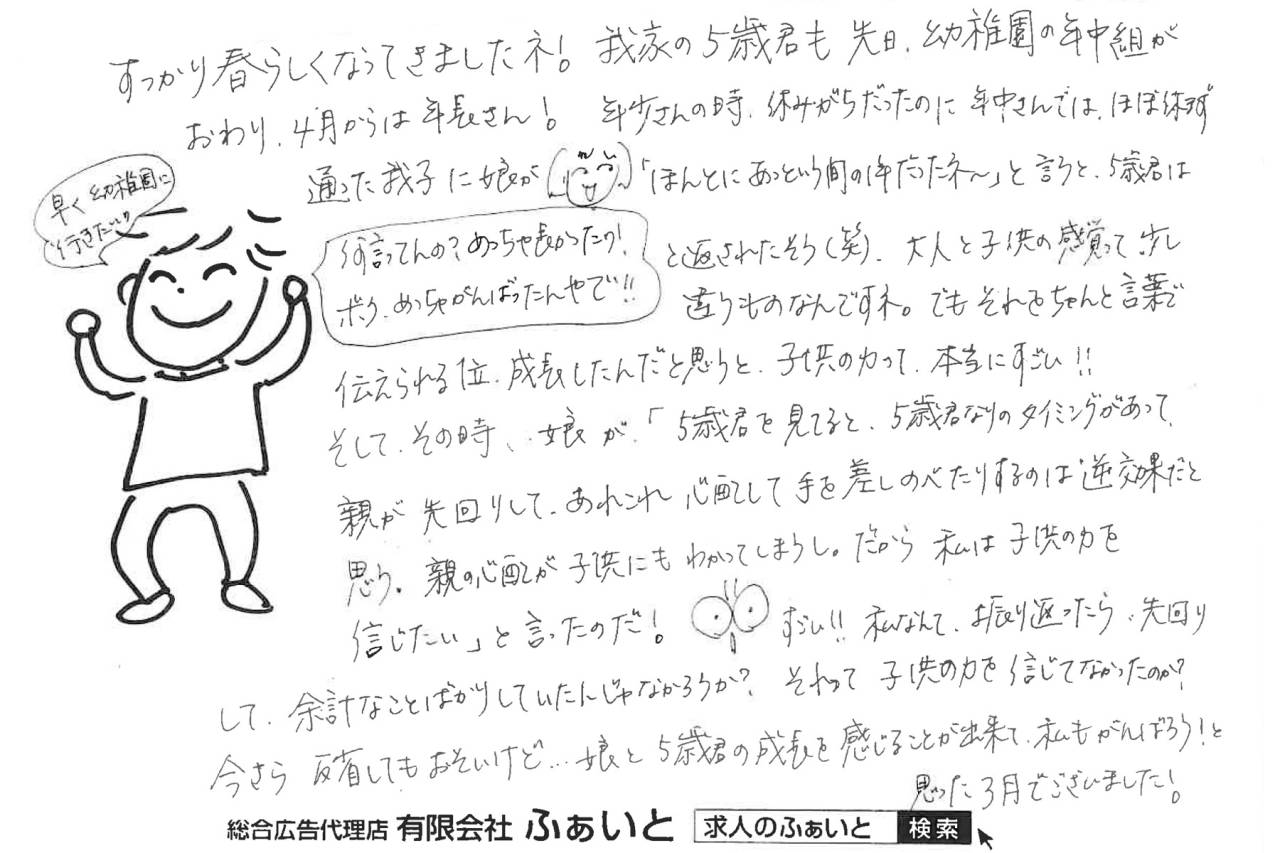 すっかり春らしくなってきましたネ! 我家の5歳君も先日、幼稚園の年中組が
おわり、4月からは年長さん! 年少さんの時、休みがちだったのに年中さんでは、ほぼ休まず
通った我子に娘が「ほんとにあっという間の1年だったネ〜」と言うと、5歳君は
早く幼稚園に
行きたい!!
何言ってんの?めっちゃ長かったワ!
ボク、めっちゃがんばったんやで!!
と返されたそう(笑)。大人と子供の感覚って少し
違うものなんですネ。でもそれをちゃんと言葉で
伝えられる位、成長したんだと思うと、子供の力って、本当にすごい!!
そして、その時、娘が、「5歳君を見てると、5歳君なりのタイミングがあって、
親が先回りして、あれこれ心配して手を差しのべたりするのは逆効果だと
思う。親の心配が子供にもわかってしまうし。だから私は子供の力を
信じたい」と言ったのだ! すごい!! 私なんて、振り返ったら、先回り
して、余計なことばかりしていたんじゃなかろうか? それって子供の力を信じてなかったのか?
今さら反省してもおそいけど…娘と5歳君の成長を感じることが出来て、私もがんばろう!と
思った3月でございました!
総合広告代理店 有限会社 ふぁいと 求人のふぁいと 検索